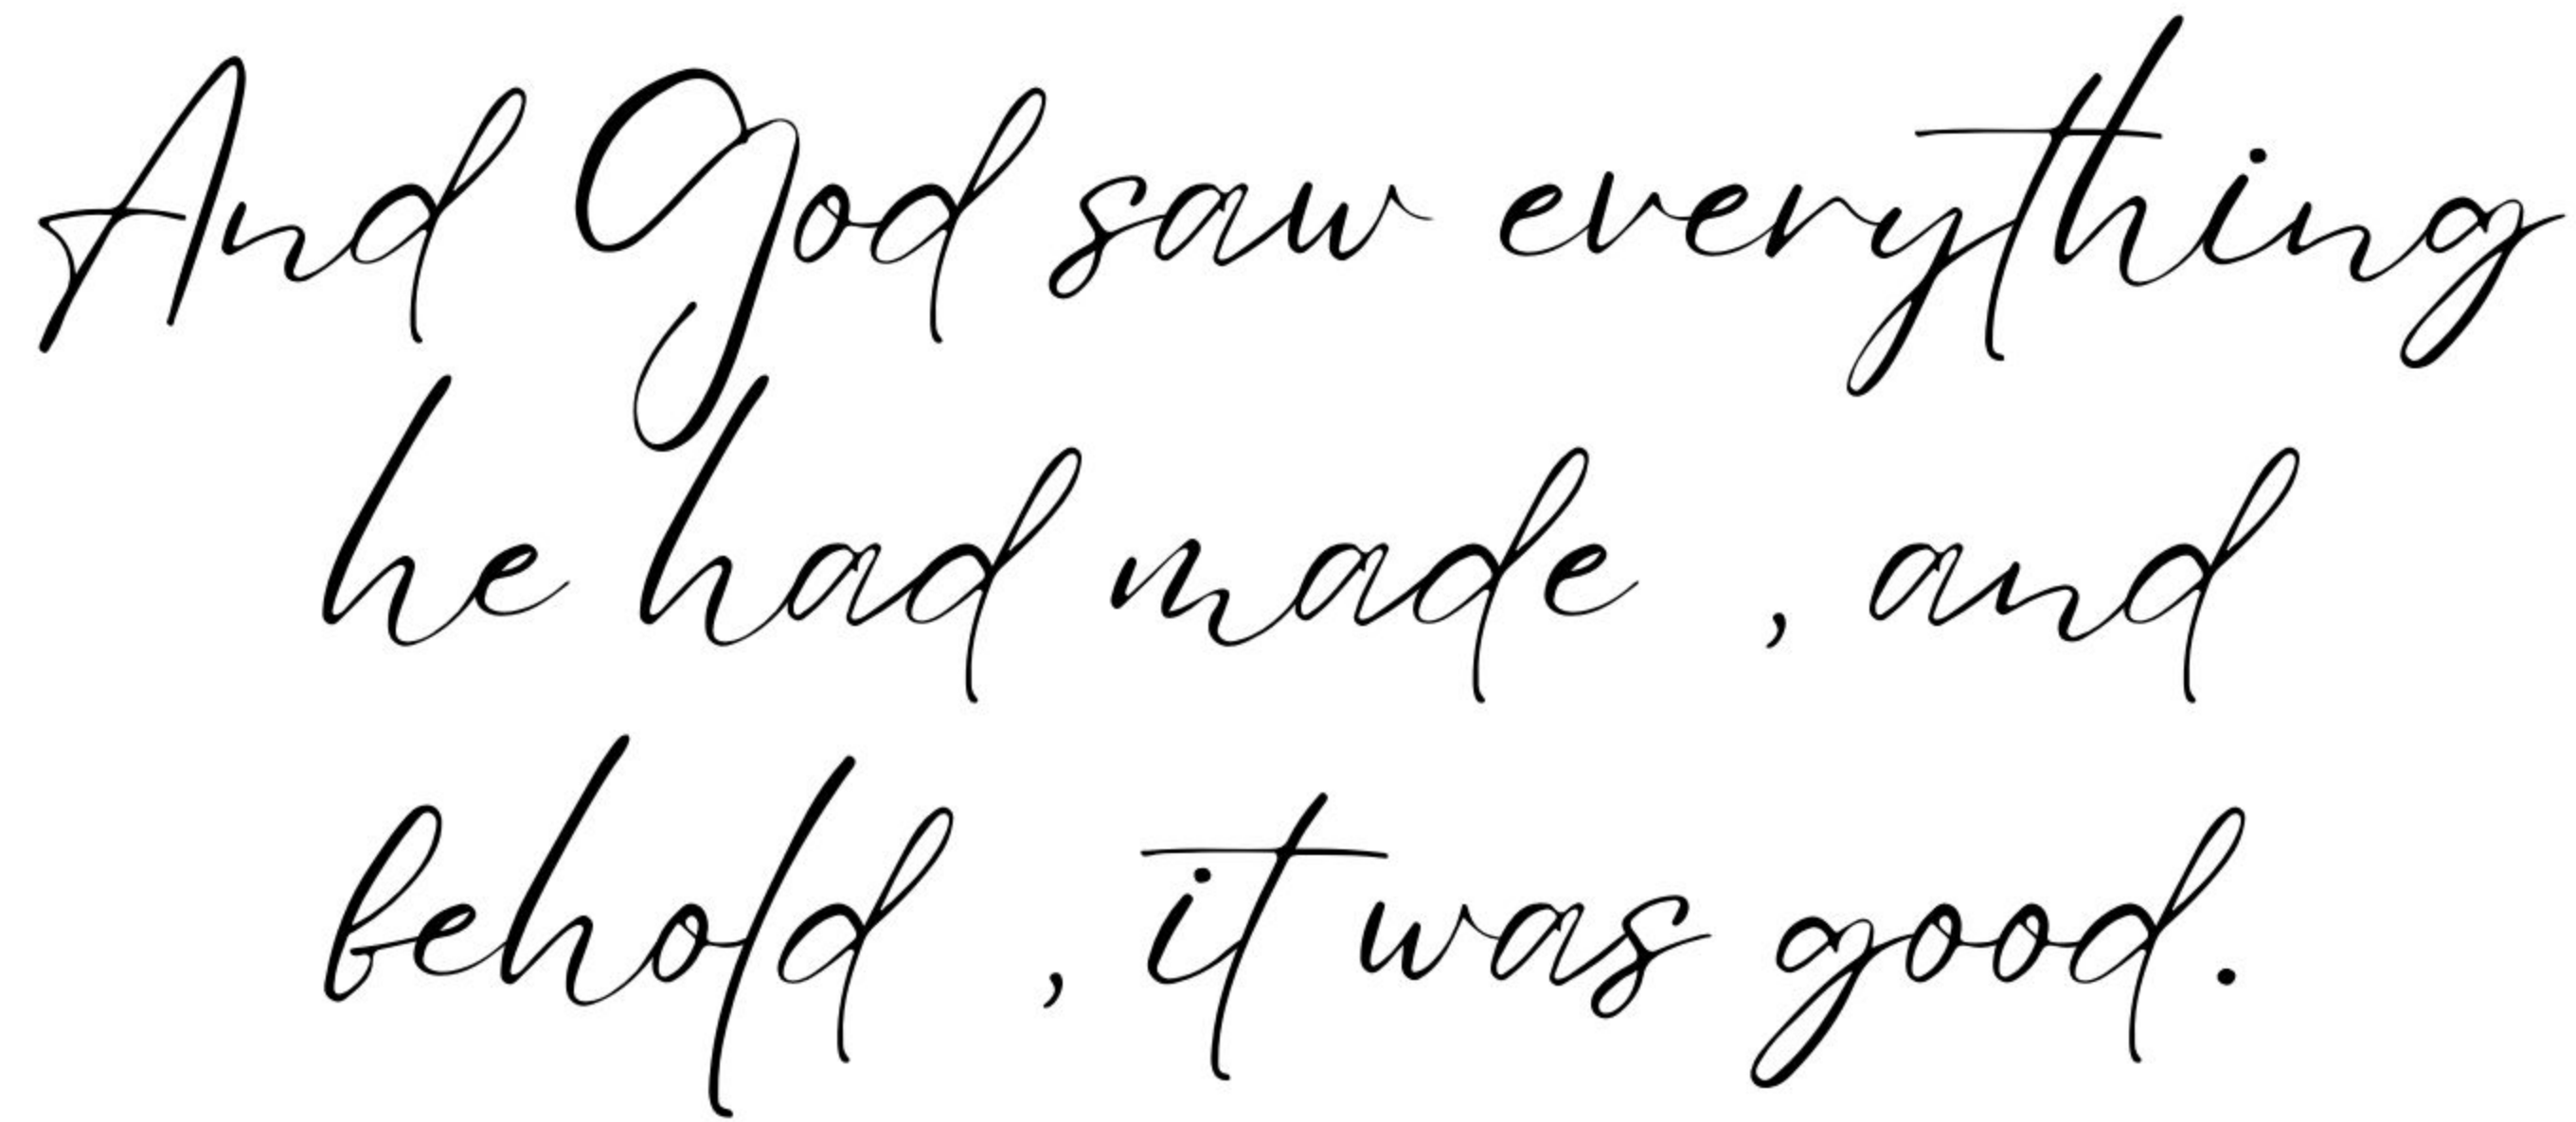 And God saw everything
he had made , and
behold , it was good.